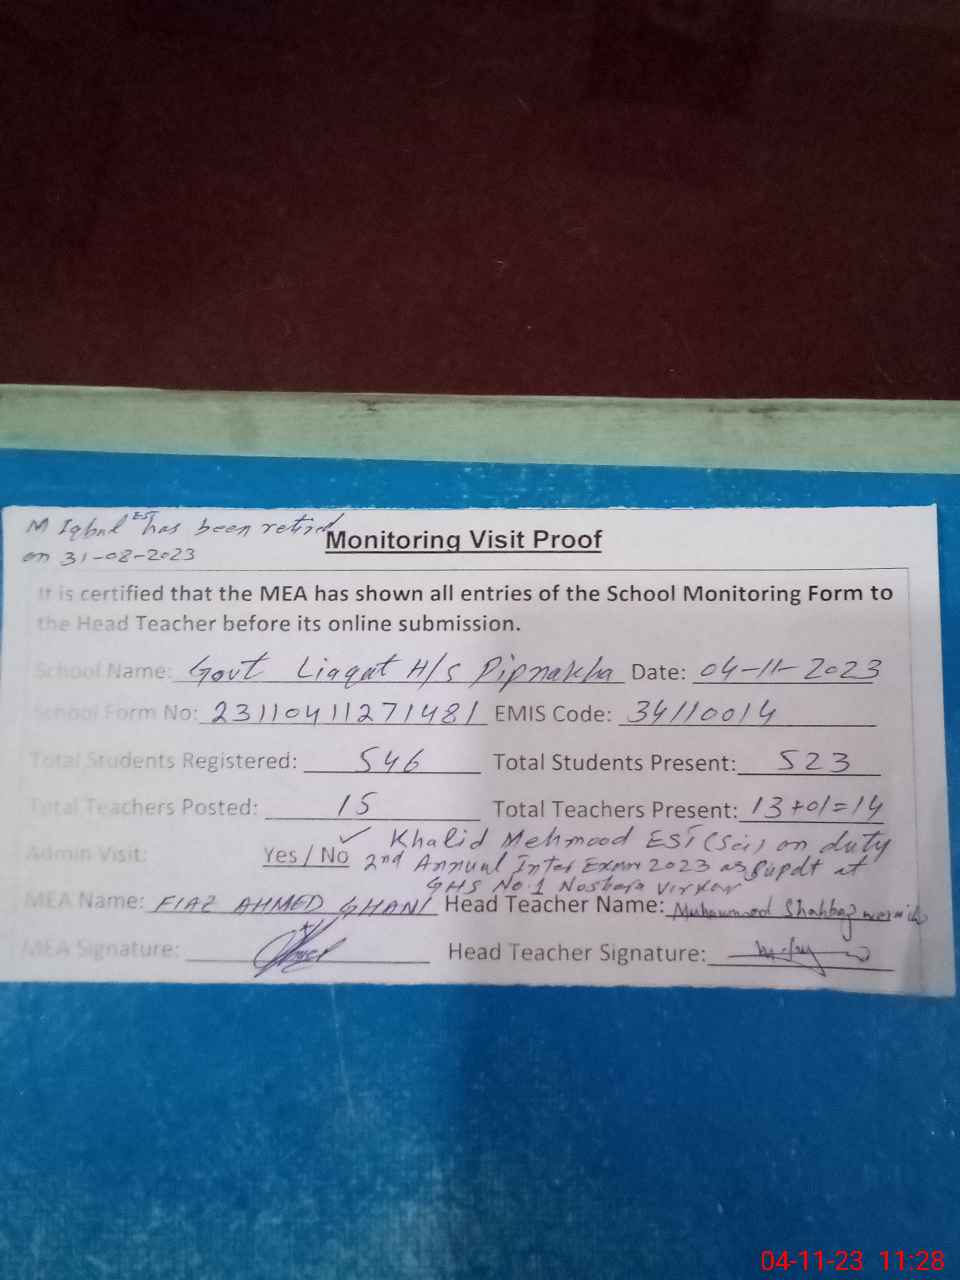 M Iqbal EST has been retired
on 31-08-2023
Monitoring Visit Proof
It is certified that the MEA has shown all entries of the School Monitoring Form to
the Head Teacher before its online submission.
School Name: Govt Liaqat H/S Pipnakha Date: 04-11-2023
School Form No: 23110411271481 EMIS Code: 34110014
Total Students Registered: 546 Total Students Present: 523
Total Teachers Posted: 15 Total Teachers Present: 13+01=14
✓ Khalid Mehmood EST (Sci) on duty
Admin Visit: Yes / No 2nd Annual Inter Exam 2023 as Supdt at
GHS No.1 Virkan
MEA Name: FIAZ AHMED GHANI Head Teacher Name: Muhammad Shahbaz
MEA Signature: Head Teacher Signature:
04-11-23 11:28